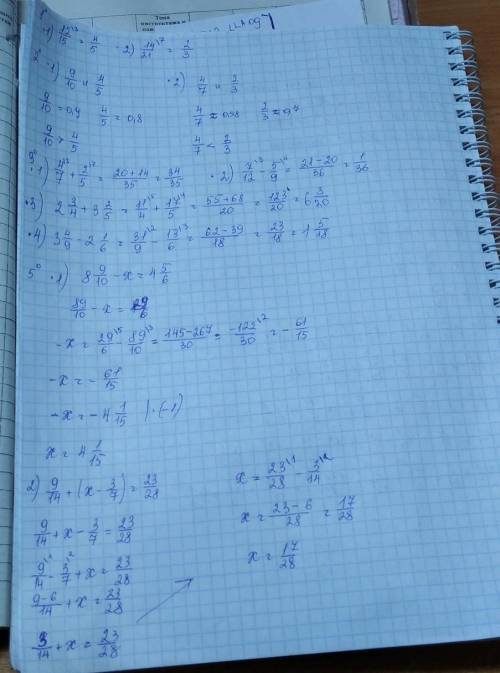 1) 12/15 = 4/5 · 2) 14/21 = 2/3
2° · 1) 9/10 и 4/5 · 2) 4/7 и 2/3
9/10 = 0,9 4/5 = 0,8 4/7 ≈ 0,58 2/3 ≈ 0,7
9/10 > 4/5 4/7 < 2/3
· 1) 4/7 + 2/5 = 20+14/35 = 34/35 · 2) 7/12 - 5/9 = 21-20/36 = 1/36
· 3) 2 3/4 + 3 2/5 = 11/4 + 17/5 = 55+68/20 = 123/20 = 6 3/20
· 4) 3 4/9 - 2 1/6 = 31/9 - 13/6 = 62-39/18 = 23/18 = 1 5/18
5° · 1) 8 9/10 - x = 4 5/6
89/10 - x = 29/6
-x = 29/6 - 89/10 = 145-267/30 = -122/30 = - 61/15
-x = - 61/15
-x = -4 1/15 | · (-1)
x = 4 1/15
2) 9/14 + (x - 3/7) = 23/28
9/14 + x - 3/7 = 23/28
9/14 - 3/7 + x = 23/28
9-6/14 + x = 23/28
3/14 + x = 23/28
x = 23/28 - 3/14
x = 23-6/28 = 17/28
x = 17/28